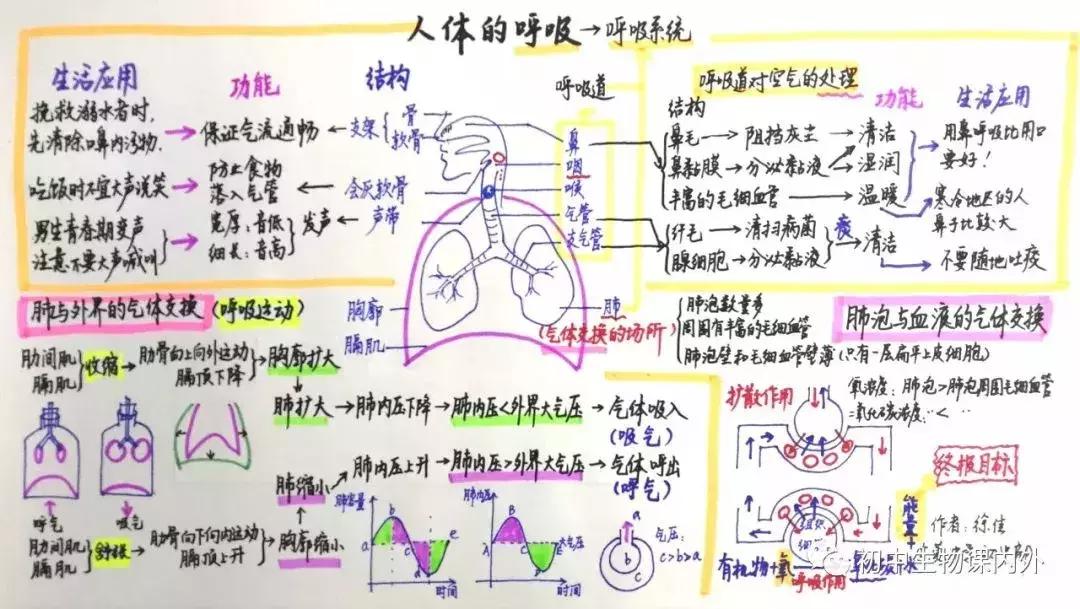 人体的呼吸→呼吸系统
生活应用 功能 结构
挽救溺水者时，
先清除口鼻内污物.
保证气流通畅
支架
骨
软骨
吃饭时不宜大声说笑
防止食物
落入气管
会厌软骨
男生青春期变声
注意不要大声喊叫
宽厚：音低
细长：音高
发声
声带
呼吸道
鼻
咽
喉
气管
支气管
肺
(气体交换的场所)
胸廓
膈肌
呼吸道对空气的处理
结构 功能 生活应用
鼻毛→阻挡灰尘→清洁
鼻黏膜→分泌黏液→湿润
丰富的毛细血管→温暖
用鼻呼吸比用口
要好！
寒冷地区的人
鼻子比较大
纤毛→清扫病菌
腺细胞→分泌黏液
痰
清洁
不要随地吐痰
肺与外界的气体交换 (呼吸运动)
肋间肌
膈肌
收缩
肋骨向上向外运动
膈顶下降
胸廓扩大
肺扩大→肺内压下降→肺内压<外界大气压→气体吸入
(吸气)
肺缩小
肺内压上升→肺内压>外界大气压→气体呼出
(呼气)
呼气
吸气
肋间肌
膈肌
舒张
肋骨向下向内运动
膈顶上升
胸廓缩小
肺容量
a
b
c
d
e
时间
肺内压
A
B
C
E
大气压
时间
a
b
c
气压：
c>b>a
肺泡数量多
周围有丰富的毛细血管
肺泡壁和毛细血管壁薄(只有一层扁平上皮细胞)
肺泡与血液的气体交换
氧浓度：肺泡>肺泡周围毛细血管
二氧化碳浓度：‥<‥
扩散作用
组织
细胞
终极目标
能量
作者：徐佳
有机物+氧
呼吸作用
初中生物课内外